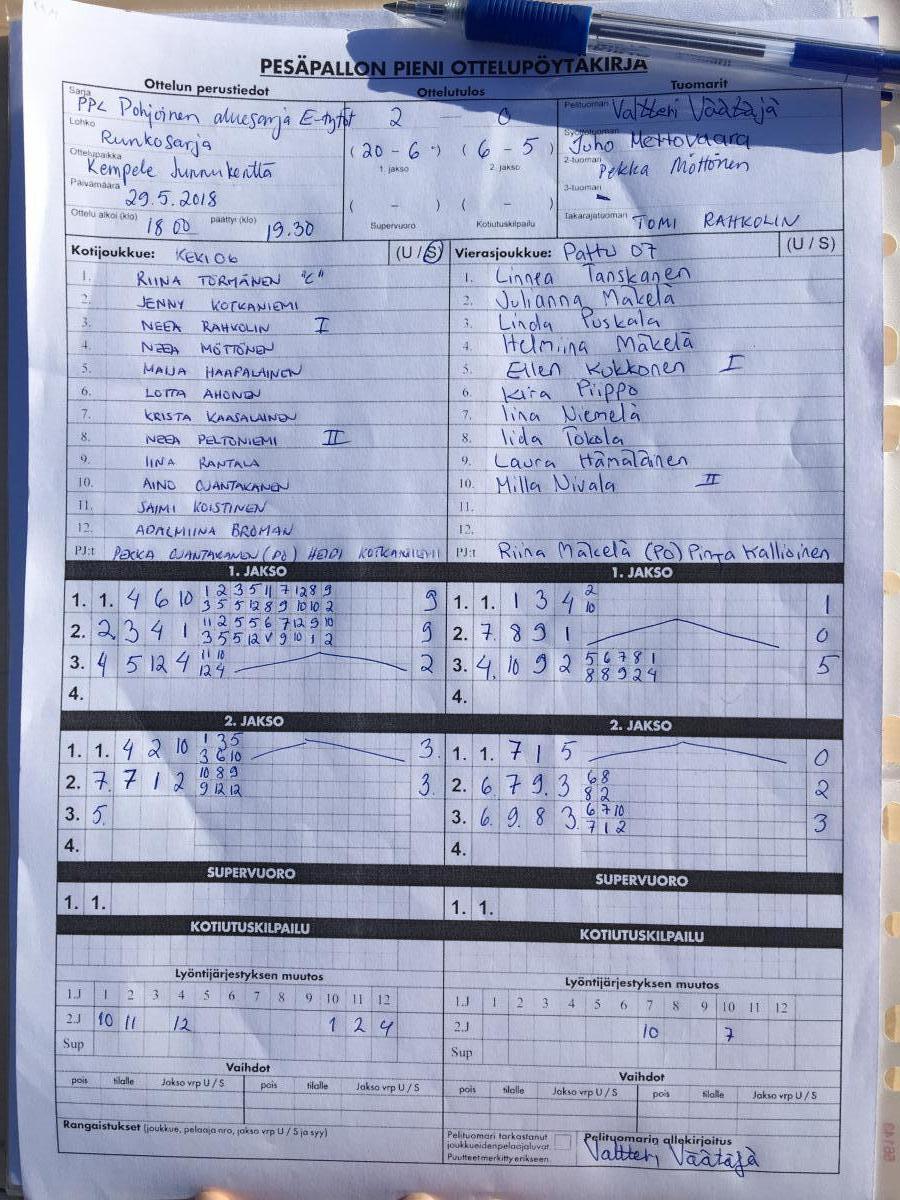 PESÄPALLON PIENI OTTELUPÖYTÄKIRJA
Ottelun perustiedot Ottelutulos Tuomarit
Sarja PPL Pohjoinen aluesarja E-tytöt 2 — 0 Pelituomari Valtteri Väätäjä
Lohko Runkosarja (20 - 6) (6 - 5) Syöttötuomari Juho Mettovaara
1. jakso 2. jakso
Ottelupaikka Kempele Sarkkiranta 2-tuomari Pekka Möttönen
Päivämäärä 29.5.2018 ( - ) ( - ) 3-tuomari -
Ottelu alkoi (klo) 18 00 päättyi (klo) 19.30 Supervuoro Kotiutuskilpailu Takarajatuomari TOMI RAHKOLIN
Kotijoukkue: KEKI 06 (U / S) Vierasjoukkue: PattU 07 (U / S)
1. RIINA TÖRMÄNEN "C" 1. Linnea Tanskanen
2. JENNY KOTKANIEMI 2. Julianna Mäkelä
3. NEEA RAHKOLIN I 3. Linda Puskala
4. NEEA MÖTTÖNEN 4. Helmiina Mäkelä
5. MAIJA HAAPALAINEN 5. Ellen Kukkonen I
6. LOTTA AHONEN 6. Kira Piippo
7. KRISTA KAASALAINEN 7. Iina Niemelä
8. NEEA PELTONIEMI II 8. Iida Tokola
9. IINA RANTALA 9. Laura Hämäläinen
10. AINO OJANTAKANEN 10. Milla Nivala II
11. SAIMI KOISTINEN 11.
12. ADALMIINA BROMAN 12.
PJ:t PEKKA OJANTAKANEN (PO) HEIDI KOTKANIEMI PJ:t Riina Mäkelä (PO) Pinja Kallioinen
1. JAKSO 1. JAKSO
1. 1. 4 6 10 1 2 3 5 11 7 12 8 9 9 1. 1. 1 3 4 2 1
3 5 5 12 8 9 10 10 2 10
2. 2 3 4 1 11 2 5 5 6 7 12 9 10 9 2. 7. 8 9 1 0
3 5 5 12 v 9 10 1 2
3. 4 5 12 4 11 10 2 3. 4. 10 9 2 5 6 7 8 1 5
12 4 8 8 9 2 4
4. 4.
2. JAKSO 2. JAKSO
1. 1. 4 2 10 1 3 5 3. 1. 1. 7 1 5 0
3 6 10
2. 7. 7 1 2 10 8 9 3. 2. 6. 7 9. 3 6 8 2
9 12 12 8 2
3. 5. 3. 6. 9. 8 3. 6 7 10 3
7 1 2
4. 4.
SUPERVUORO SUPERVUORO
1. 1. 1. 1.
KOTIUTUSKILPAILU KOTIUTUSKILPAILU
Lyöntijärjestyksen muutos Lyöntijärjestyksen muutos
1.J 1 2 3 4 5 6 7 8 9 10 11 12 1.J 1 2 3 4 5 6 7 8 9 10 11 12
2.J 10 11 12 1 2 4 2.J 10 7
Sup Sup
Vaihdot Vaihdot
pois tilalle Jakso vrp U / S pois tilalle Jakso vrp U / S pois tilalle Jakso vrp U / S pois tilalle Jakso vrp U / S
Rangaistukset (joukkue, pelaaja nro, jakso vrp U / S ja syy) Pelituomari tarkastanut Pelituomarin allekirjoitus
joukkueiden pelaajaluvat. Valtteri Väätäjä
Puutteet merkitty erikseen.